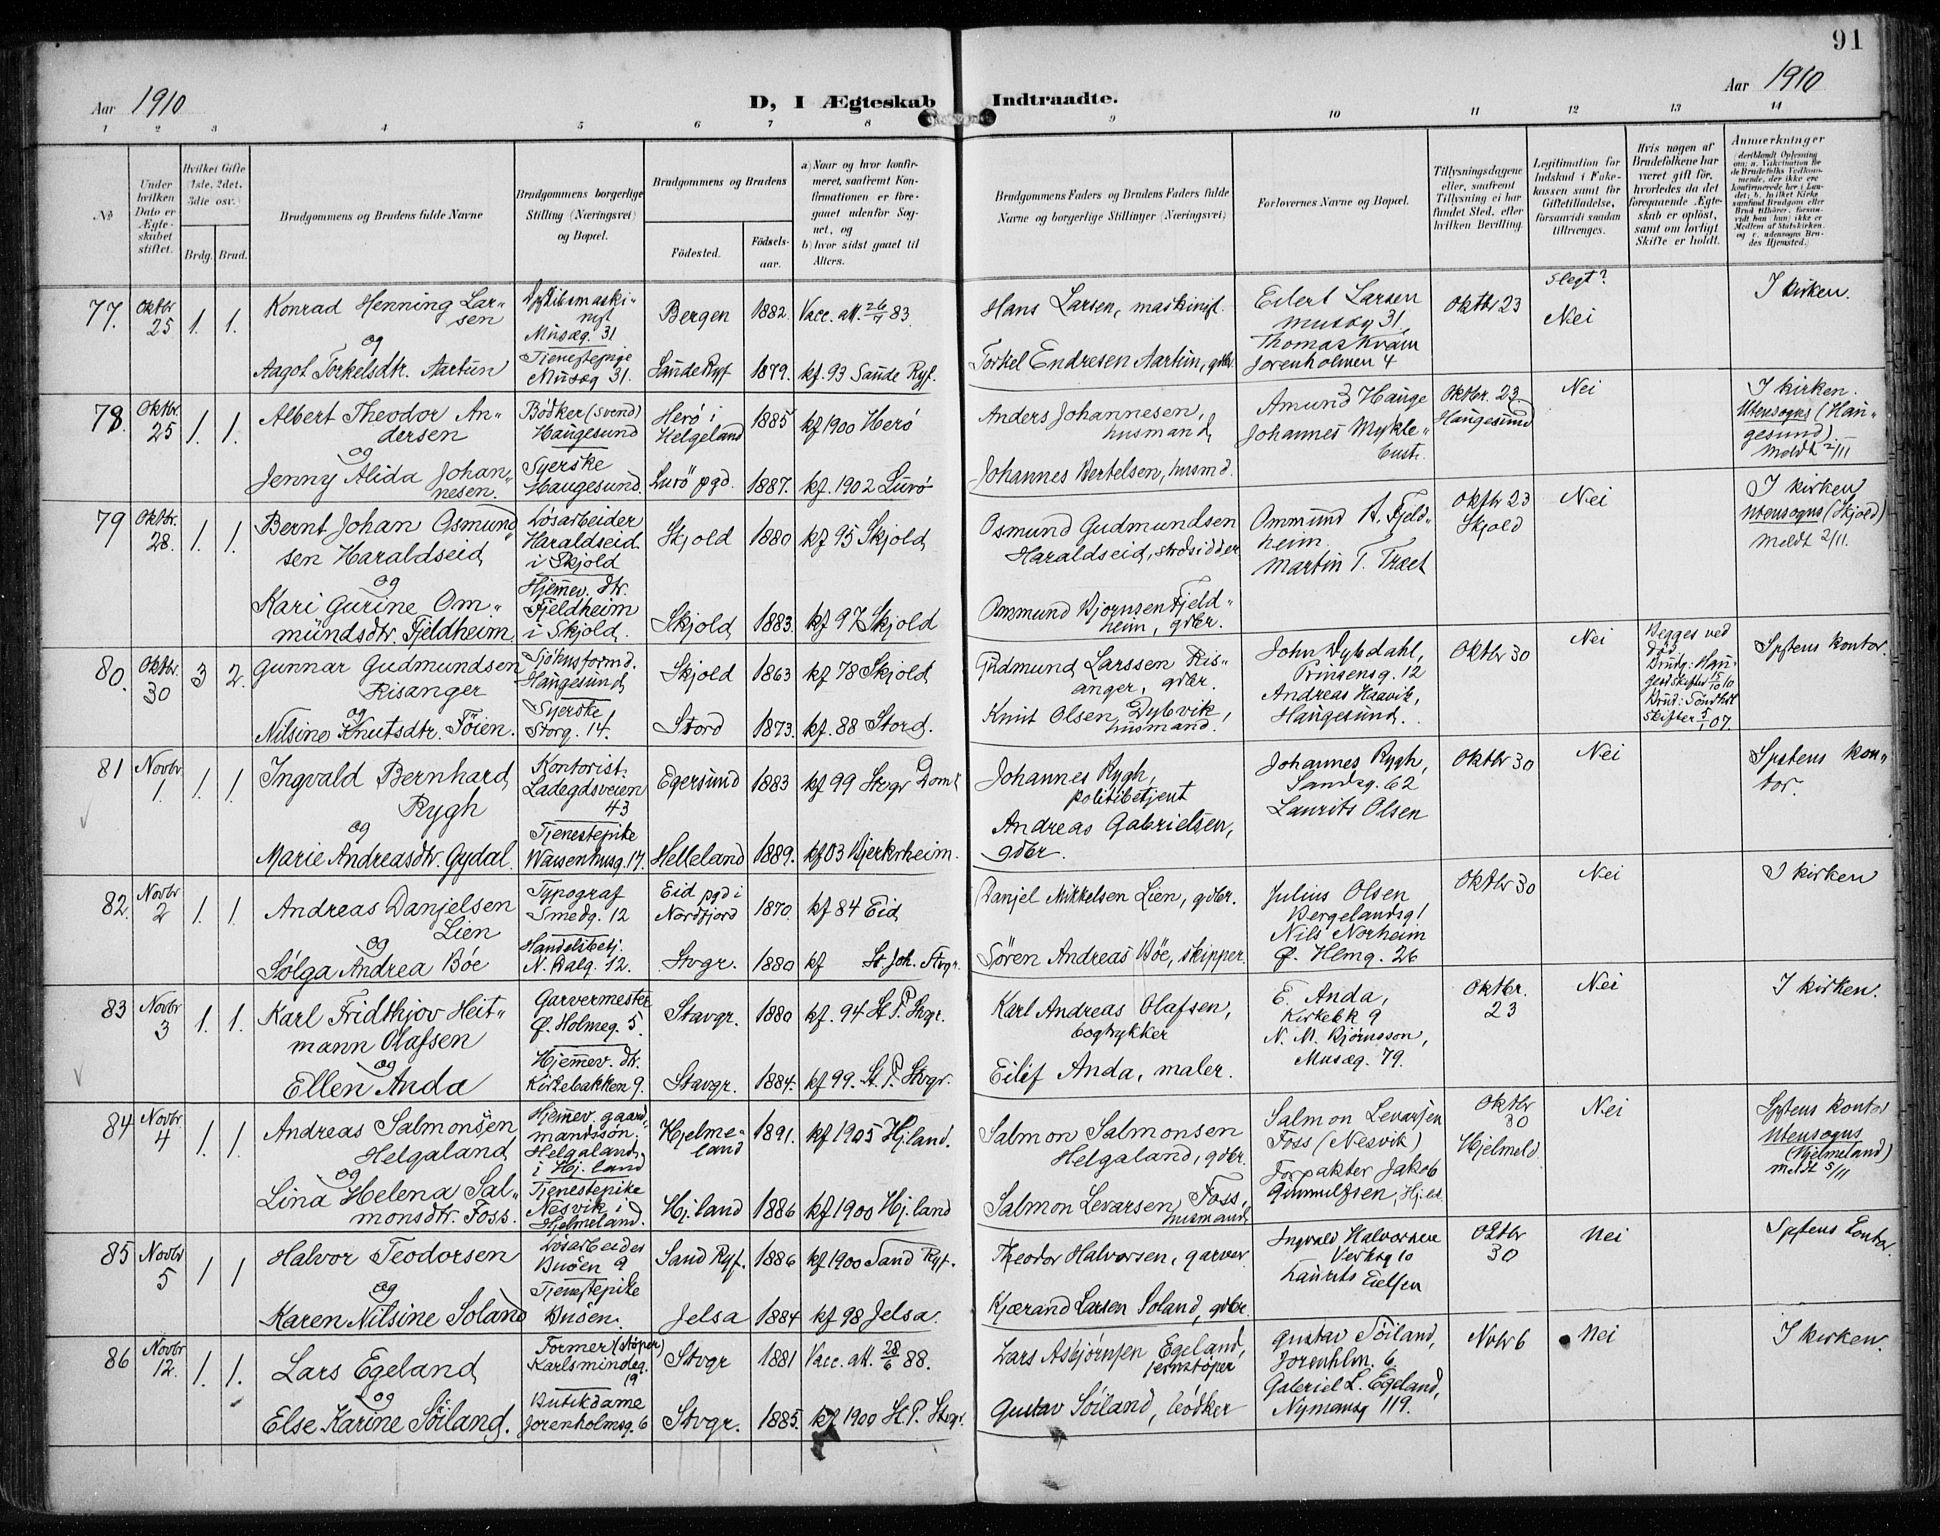 91
Aar 1910
D, I Ægteskab Indtraadte.
Aar 1910
1 2 3 4 5 6 7 8 9 10 11 12 13 14
No
Under hvilken Dato er Ægteskabet stiftet.
Hvilket Gifte 1ste, 2det, 3die osv.
Brdg. Brud.
Brudgommens og Brudens fulde Navne
Brudgommens borgerlige Stilling (Næringsvei) og Bopæl.
Brudgommens og Brudens
Födested.
Födsels-aar.
a) Naar og hvor konfirmeret, saafremt Konfirmationen er foregaaet udenfor Sognet, og
b) hvor sidst gaaet til Alters.
Brudgommens Faders og Brudens Faders fulde Navne og borgerlige Stillinger (Næringsvei)
Forlovernes Navne og Bopæl.
Tillysningsdagene eller, saafremt Tillysning ei har fundet Sted, efter hvilken Bevilling.
Legitimation for Indskud i Enkekassen samt for Giftetilladelse, forsaavidt saadan tiltrænges.
Hvis nogen af Brudefolkene har været gift før, hvorledes da det foregaaende Ægteskab er oplöst, samt om lovligt Skifte er holdt.
Anmærkninger
77. Oktbr 25 1. 1. Konrad Henning Larsen
Musæg. 31
Bergen 1882. Vacc. att. 26/7 83.
Hans Larsen, maskinist.
Eilert Larsen
Musæg 31.
Thomas Kvam
Jorenholmen 4
Oktbr 23
Slegt?
Nei
I kirken.
og
Aagot Torkelsdtr. Aartun
Tjenestepige
Musæg 31.
Sande Ryf 1879. kf. 93 Sande Ryf.
Torkel Endresen Aartun, gdbr.
78. Oktbr. 25 1. 1. Albert Theodor Andersen
Bødker (svend)
Haugesund
Herø i Helgeland 1885 kf 1900 Herø
Anders Johannesen, husmand,
Amund Hauge
Johannes Myklebust.
Oktbr. 23
Haugesund
Nei
I kirken.
Utensogns (Haugesund)
meldt 2/11
og
Jenny Alida Johannesen.
Syerske
Haugesund.
Lurö pgd. 1887. kf. 1902 Lurö
Johannes Bertelsen, husmd.
79 Oktbr. 28. 1. 1. Bernt Johan Osmundsen Haraldseid
Løsarbeider
Haraldseid
i Skjold
Skjold 1880 kf 95 Skjold
Osmund Gudmundsen
Haraldseid, strandsidder
Ommund A. Fjeldheim.
Martin T. Træet
Oktbr 23
Skjold
Nei
I kirken
Utensogns (Skjold)
meldt 2/11.
og
Kari Gurine Ommundsdtr. Fjeldheim.
Hjemmev. dtr.
Fjeldheim
i Skjold.
Skjold 1883. kf 97 Skjold
Ommund Bjornsen Fjeldheim, gdbr.
80. Oktbr. 30 3 2. Gunnar Gudmundsen
Risanger
Haugesund
Skjold 1863 kf 78 Skjold
Gudmund Larssen Risanger, gdbr.
John Dybdahl,
Prinsensg. 12
Andreas Haavik,
Haugesund.
Oktbr 30
Nei
Begges ved
død.
Brudg: Haugesd skifte 15/10 10
skifter 5/1 07.
Spstens kontor.
og
Nilsine Knutsdtr. Føien.
Syerske
Storg. 14.
Stord 1873. kf. 88 Stord.
Knut Olsen Dybvik,
husmand.
81 Novbr 1. 1. 1. Ingvald Bernhard
Rygh
Kontorist.
Ladegdsveien
43
Egersund 1883 kf 99 Stvgr Domk
Johannes Rygh,
politibetjent
Johannes Rygh,
Sandsg. 62
Laurits Olsen
Oktbr 30
Nei
Spstens kontor.
og
Marie Andreasdtr. Gydal.
Tjenestepike
Waisenhusg. 17.
Helleland 1889. kf 03 Bjerkrheim.
Andreas Gabrielsen,
gdbr.
82. Novbr 2 1. 1. Andreas Danjelsen
Lien
Typograf
Smedg. 12
Eid pgd i
Nordfjord 1870. kf 84 Eid
Danjel Mikkelsen Lien, gdbr.
Julius Olsen
Bergelandsg 1
Nils Norheim
Ø. Hlmg. 26
Oktbr 30
Nei
I kirken
og
Sølga Andrea Bøe
Handelsbetj.
N. Dalg. 12.
Stvgr. 1880 kf St. Joh. Stvgr.
Søren Andreas Bøe, skipper.
83 Novbr 3 1. 1. Karl Fridthjov Heitmann Olafsen
Garvermester
Ø. Holmeg. 5
Stavgr. 1880 kf. 94 St. P. Stvgr.
Karl Andreas Olafsen,
bogtrykker
E. Anda,
Kirkebk 9
N. M. Bjørnsson,
Musæg. 79.
Oktbr. 23
Nei
I kirken.
og
Ellen Anda
Hjemmev. dtr.
Kirkebakken 9.
Stavgr. 1884. kf 99. St. P. Stvgr.
Eilif Anda, maler.
84 Novbr 4 1. 1. Andreas Salmonsen
Helgaland
Hjemmev. gaardmandssøn.
Helgaland
i Hj. land
Hjelmeland 1891. kf 1905 Hj. land.
Salmon Salmonsen
Helgaland, gdbr.
Salmon Levarsen
Foss (Nesvik)
Forpakter Jakob
Oktbr 30
Hjelmeld.
Nei
Spstens kontor
Utensogns
(Hjelmeland)
meldt 5/11
og
Lina Helena Salmonsdtr. Foss.
Tjenestepike
Nesvik i
Hjelmeland.
Hj. land 1886 kf 1900 Hj. land
Salmon Levarsen Foss,
husmand
85 Novbr 5 1 1 Halvor Teodorsen
Løsarbeider
Buøen 9
Sand Ryf. 1886 kf 1900 Sand Ryf.
Theodor Halvorsen, garver
Ingvald Halvorsen
Verksg 10
Laurits Eielsen
Oktbr 30
Nei
Spstens kontor.
og
Karen Nilsine Soland
Tjenestepike
Buøen.
Jelsa 1884 kf 98 Jelsa.
Kjærand Larsen Soland, gdbr.
86 Novbr 12. 1. 1. Lars Egeland
Former (støper)
Karlsmindeg.
19
Stvgr 1881 Vacc. att. 28/6 88.
Lars Asbjørnsen Egeland,
jernstøper
Gustav Søiland,
Jorenhlm. 6
Gabriel L. Egeland,
Nymansg 119.
Novbr 6
Nei
I kirken.
og
Else Karine Søiland.
Butikdame
Jorenholmsg. 6
Stvgr. 1885. kf 1900 St. P. Stvgr.
Gustav Søiland, bødker